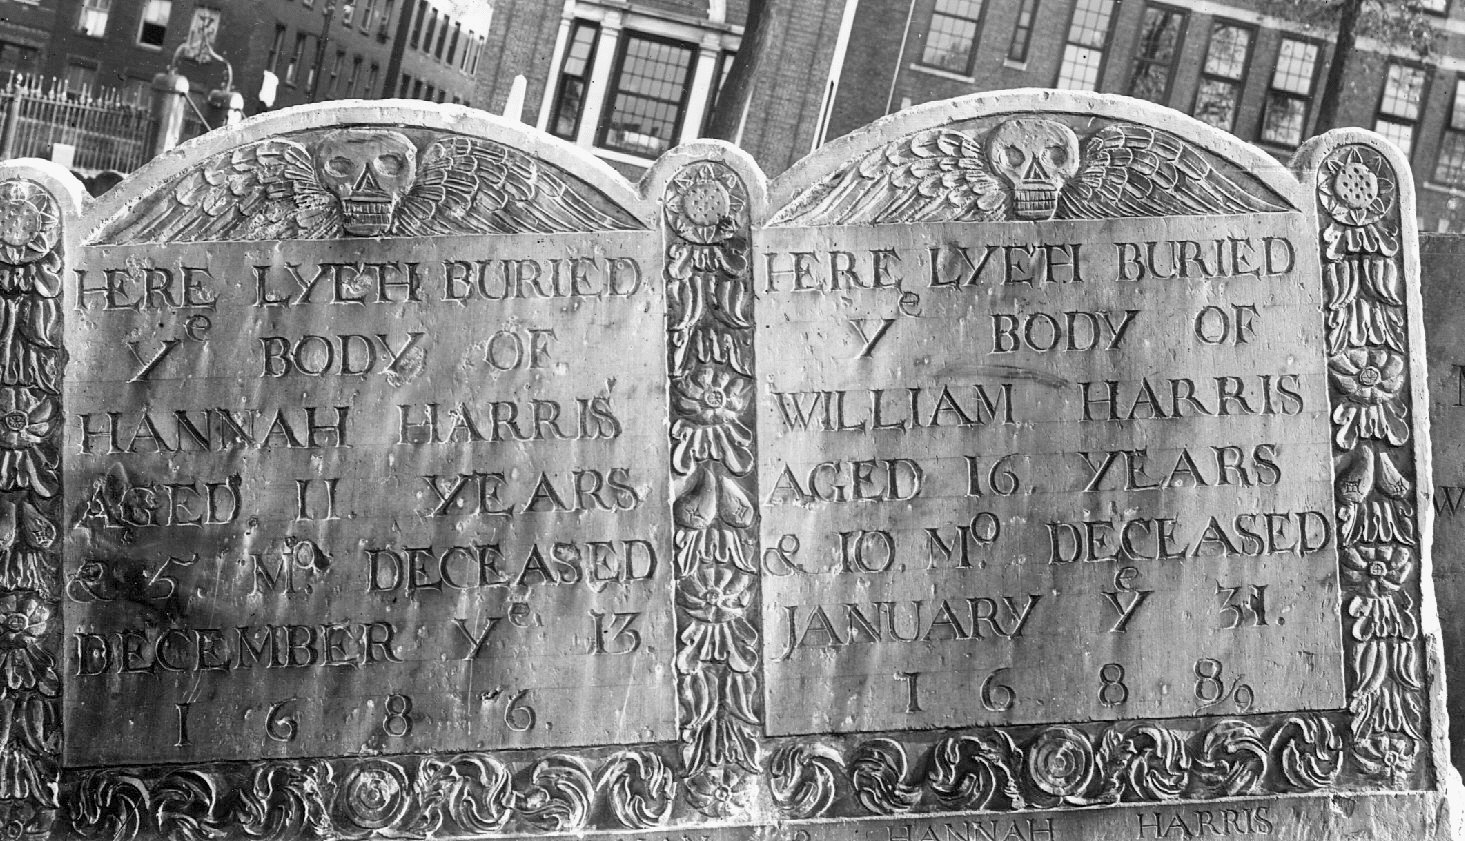 HERE LYETH BURIED
Yͤ BODY OF
HANNAH HARRIS
AGED 11 YEARS
& 5 Mº DECEASED
DECEMBER Yͤ 13
1686
HERE LYETH BURIED
Yͤ BODY OF
WILLIAM HARRIS
AGED 16 YEARS
& 10. Mº DECEASED
JANUARY Yͤ 31.
168 8/9
HANNAH HARRIS